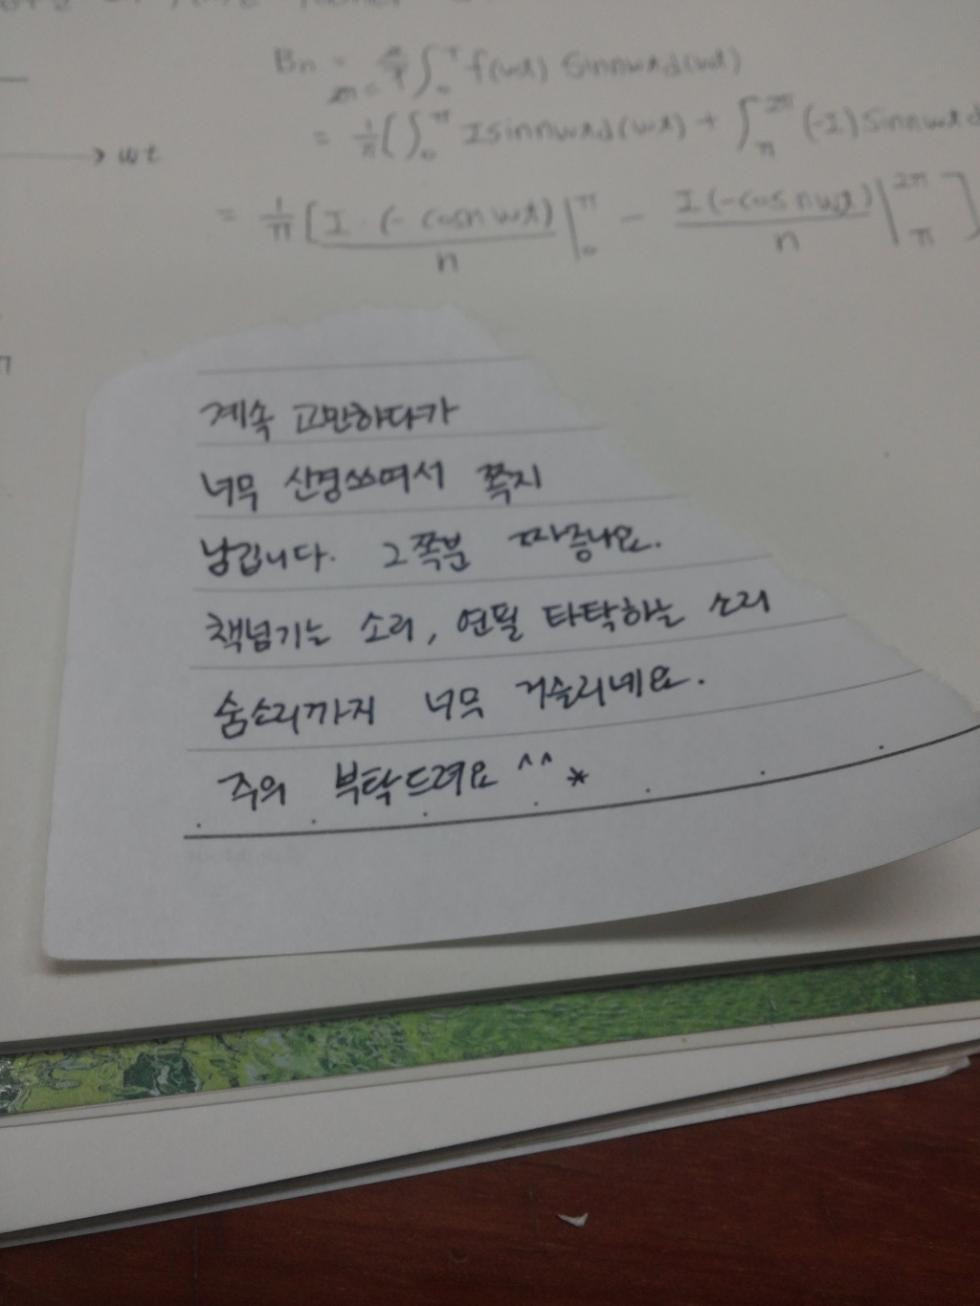 Bn = 2/T ∫₀ᵀ f(wt) sinnwtd(wt)
= 1/π [∫₀^π Isinnwtd(wt) + ∫π^2π (-I) sinnwtd
→ wt
= 1/π [I · (-cosnwt)/n |₀^π - I(-cosnwt)/n |π^2π]
계속 고민하다가
너무 신경쓰여서 쪽지
남깁니다. 그쪽분 짜증나요.
책넘기는 소리, 연필 타탁하는 소리
숨소리까지 너무 거슬리네요.
주의 부탁드려요 ^^ *